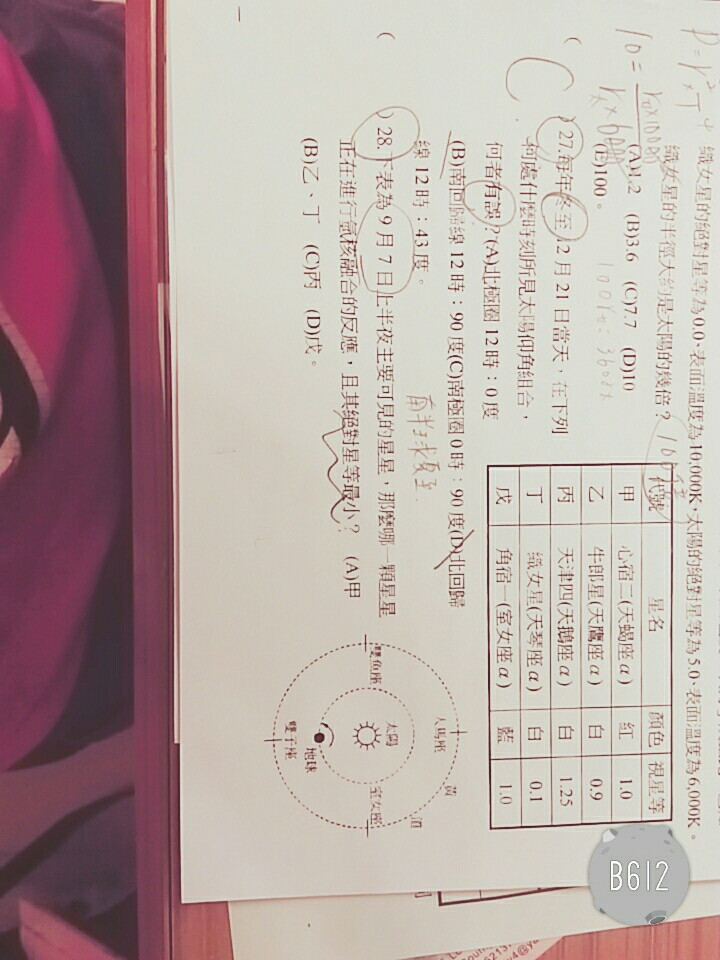 P=r²×T⁴
織女星的絕對星等為0.0、表面溫度為10,000K,太陽的絕對星等為5.0、表面溫度為6,000K。
織女星的半徑大約是太陽的幾倍?
(A)1.2 (B)3.6 (C)7.7 (D)10
(E)100。
C
( ) 27.每年冬至12月21日當天,在下列
何處什麼時刻所見太陽仰角組合,
何者有誤?(A)北極圈12時:0度
(B)南回歸線12時:90度(C)南極圈0時:90度(D)北回歸
線12時:43度。
南半球夏至
( ) 28.下表為9月7日上半夜主要可見的星星,那麼哪一顆星星
正在進行氫核融合的反應,且其絕對星等最小? (A)甲
(B)乙、丁 (C)丙 (D)戊。
代號 星名 顏色 視星等
甲 心宿二(天蝎座α) 紅 1.0
乙 牛郎星(天鷹座α) 白 0.9
丙 天津四(天鵝座α) 白 1.25
丁 織女星(天琴座α) 白 0.1
戊 角宿一(室女座α) 藍 1.0
人馬座
黃
道
雙魚座
太陽
室女座
地球
雙子座
B612